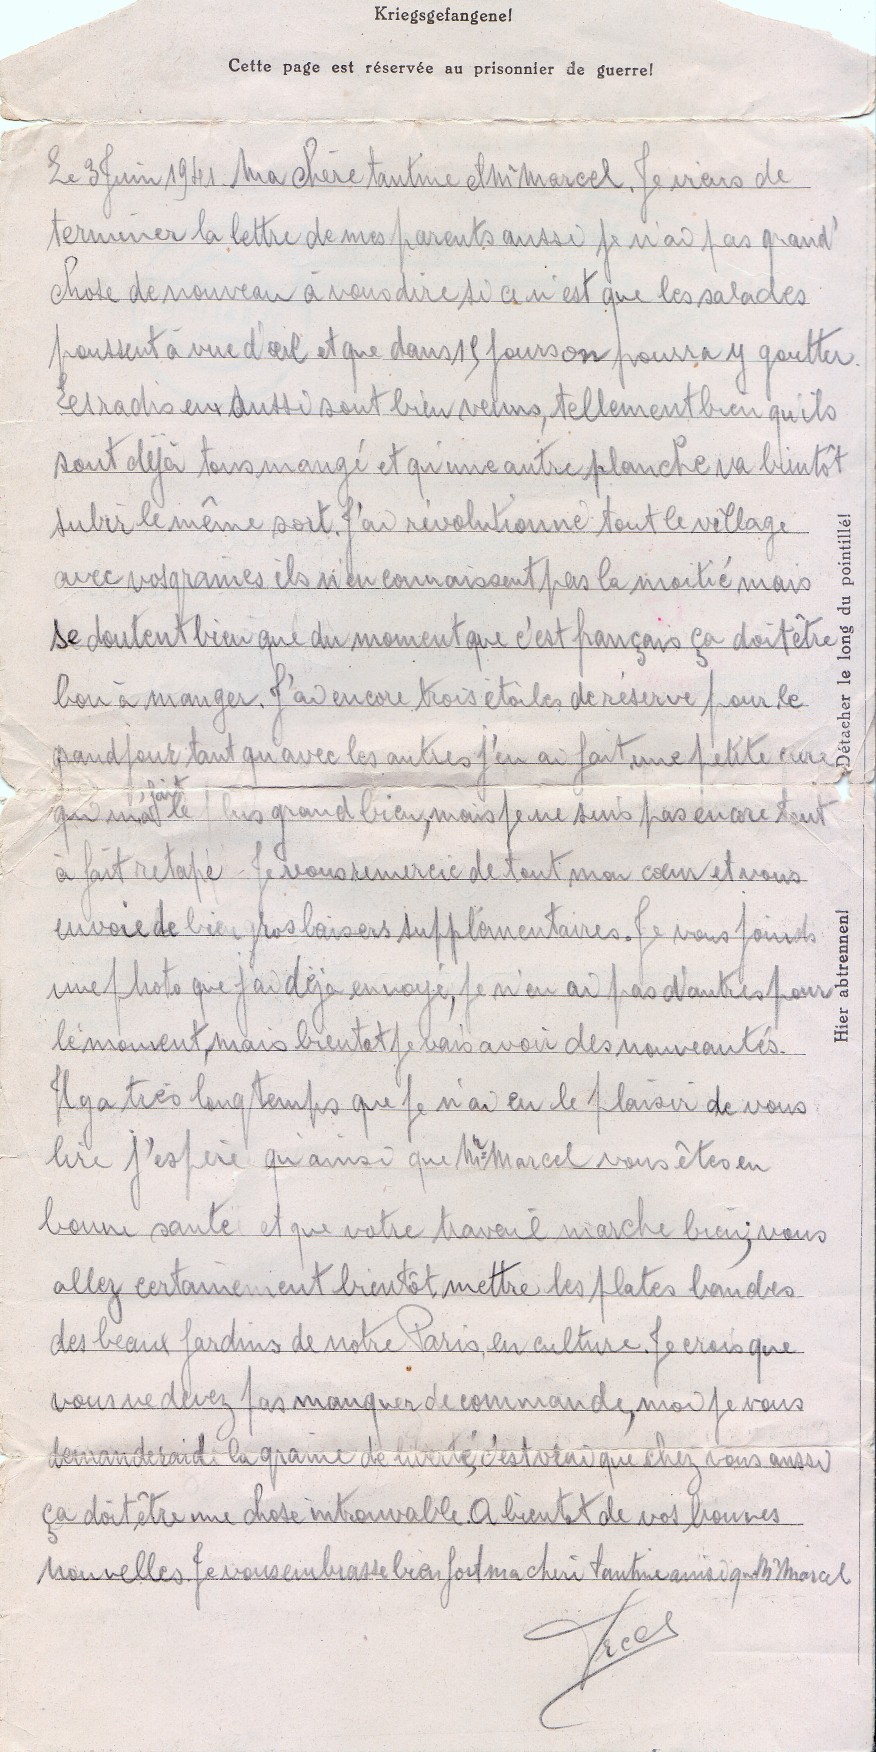 Kriegsgefangene!
Cette page est réservée au prisonnier de guerre!
Le 3 Juin 1941. Ma chère tantine et Mr Marcel. Je viens de
terminer la lettre de mes parents aussi je n'ai pas grand'
chose de nouveau à vous dire si ce n'est que les salades
poussent à vue d'œil et que dans 15 jours on pourra y goutter.
Les radis eux aussi sont bien venus, tellement bien qu'ils
sont déjà tous mangé et qu'une autre planche va bientôt
subir le même sort. J'ai révolutionné tout le village
avec vos graines ils n'en connaissent pas la moitié mais
se doutent bien que du moment que c'est français ça doit être
bon à manger. J'ai encore trois étoiles de réserve pour le
grand jour tant qu'avec les autres j'en ai fait une petite cure
qui m'a fait le plus grand bien, mais je ne suis pas encore tout
à fait retapé - Je vous remercie de tout mon cœur et vous
envoie de bien gros baisers supplémentaires. Je vous joinds
une photo que j'ai déja envoyé, je n'en ai pas d'autres pour
le moment, mais bientot je vais avoir des nouveautés.
Il y a très longtemps que je n'ai eu le plaisir de vous
lire j'espère qu'ainsi que Mr Marcel vous êtes en
bonne santé et que votre travail marche bien; vous
allez certainement bientôt mettre les plates bandes
des beaux jardins de notre Paris en culture. Je crois que
vous ne devez pas manquer de commande, moi je vous
demanderai de la graine de liberté, c'est vrai que chez vous aussi
ça doit être une chose introuvable. A bientot de vos bonnes
nouvelles. Je vous embrasse bien fort ma chéri tantine ainsi que Mr Marcel
Détacher le long du pointillé!
Hier abtrennen!